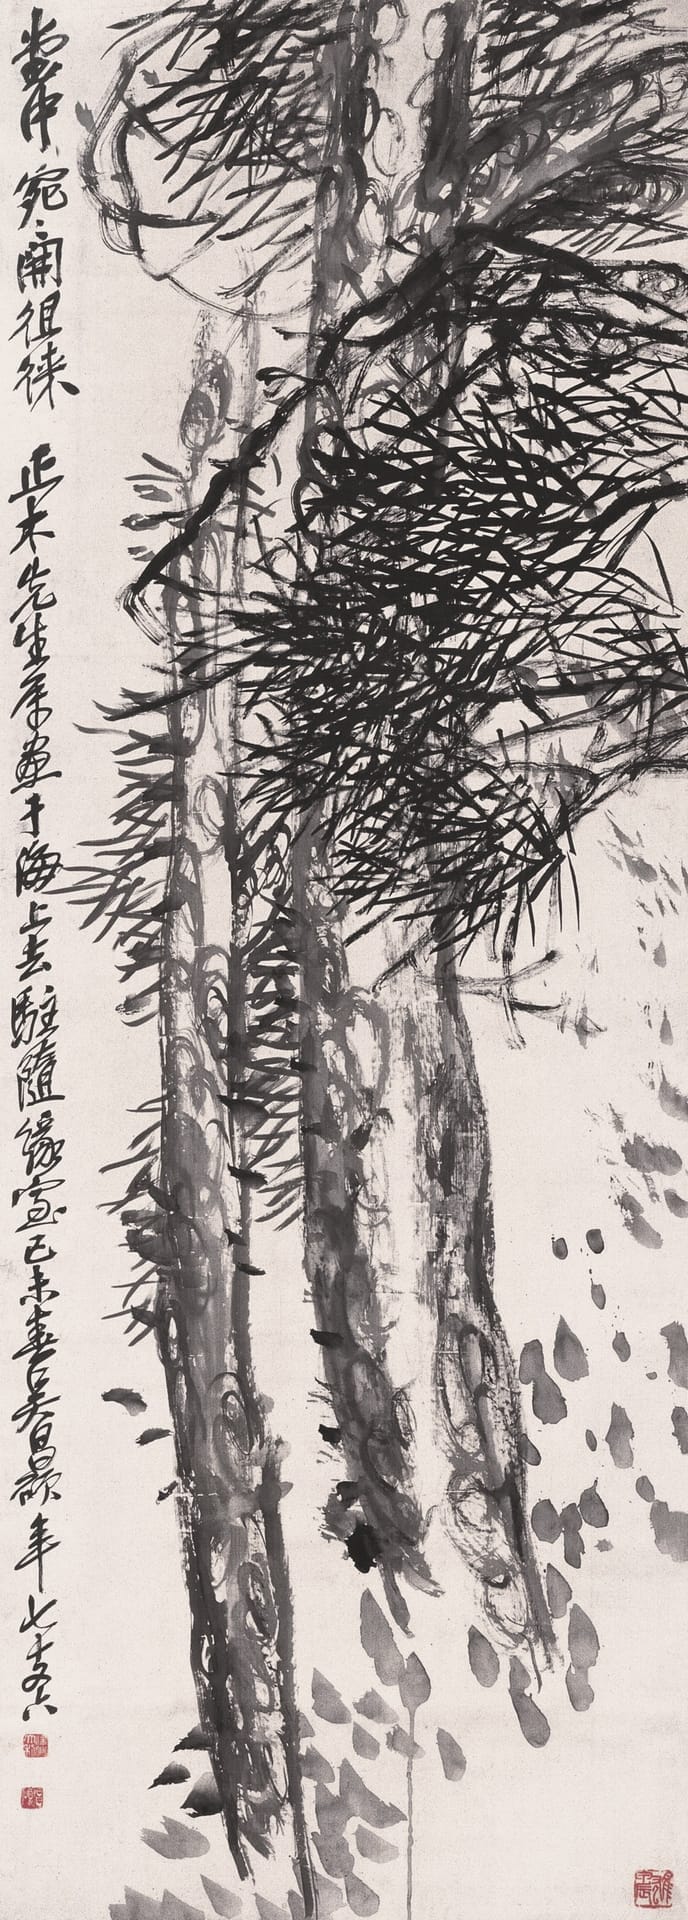 堂中宛宛開徂徠
正木先生屬畫于海上去駐隨緣室己未春吳昌碩年七十六